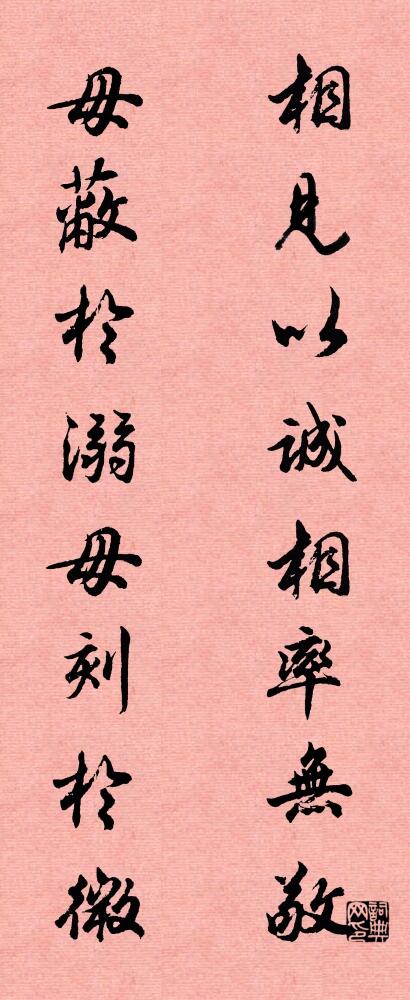 相見以誠相率無敬
毋蔽於溺毋刻於微
詞典
网印